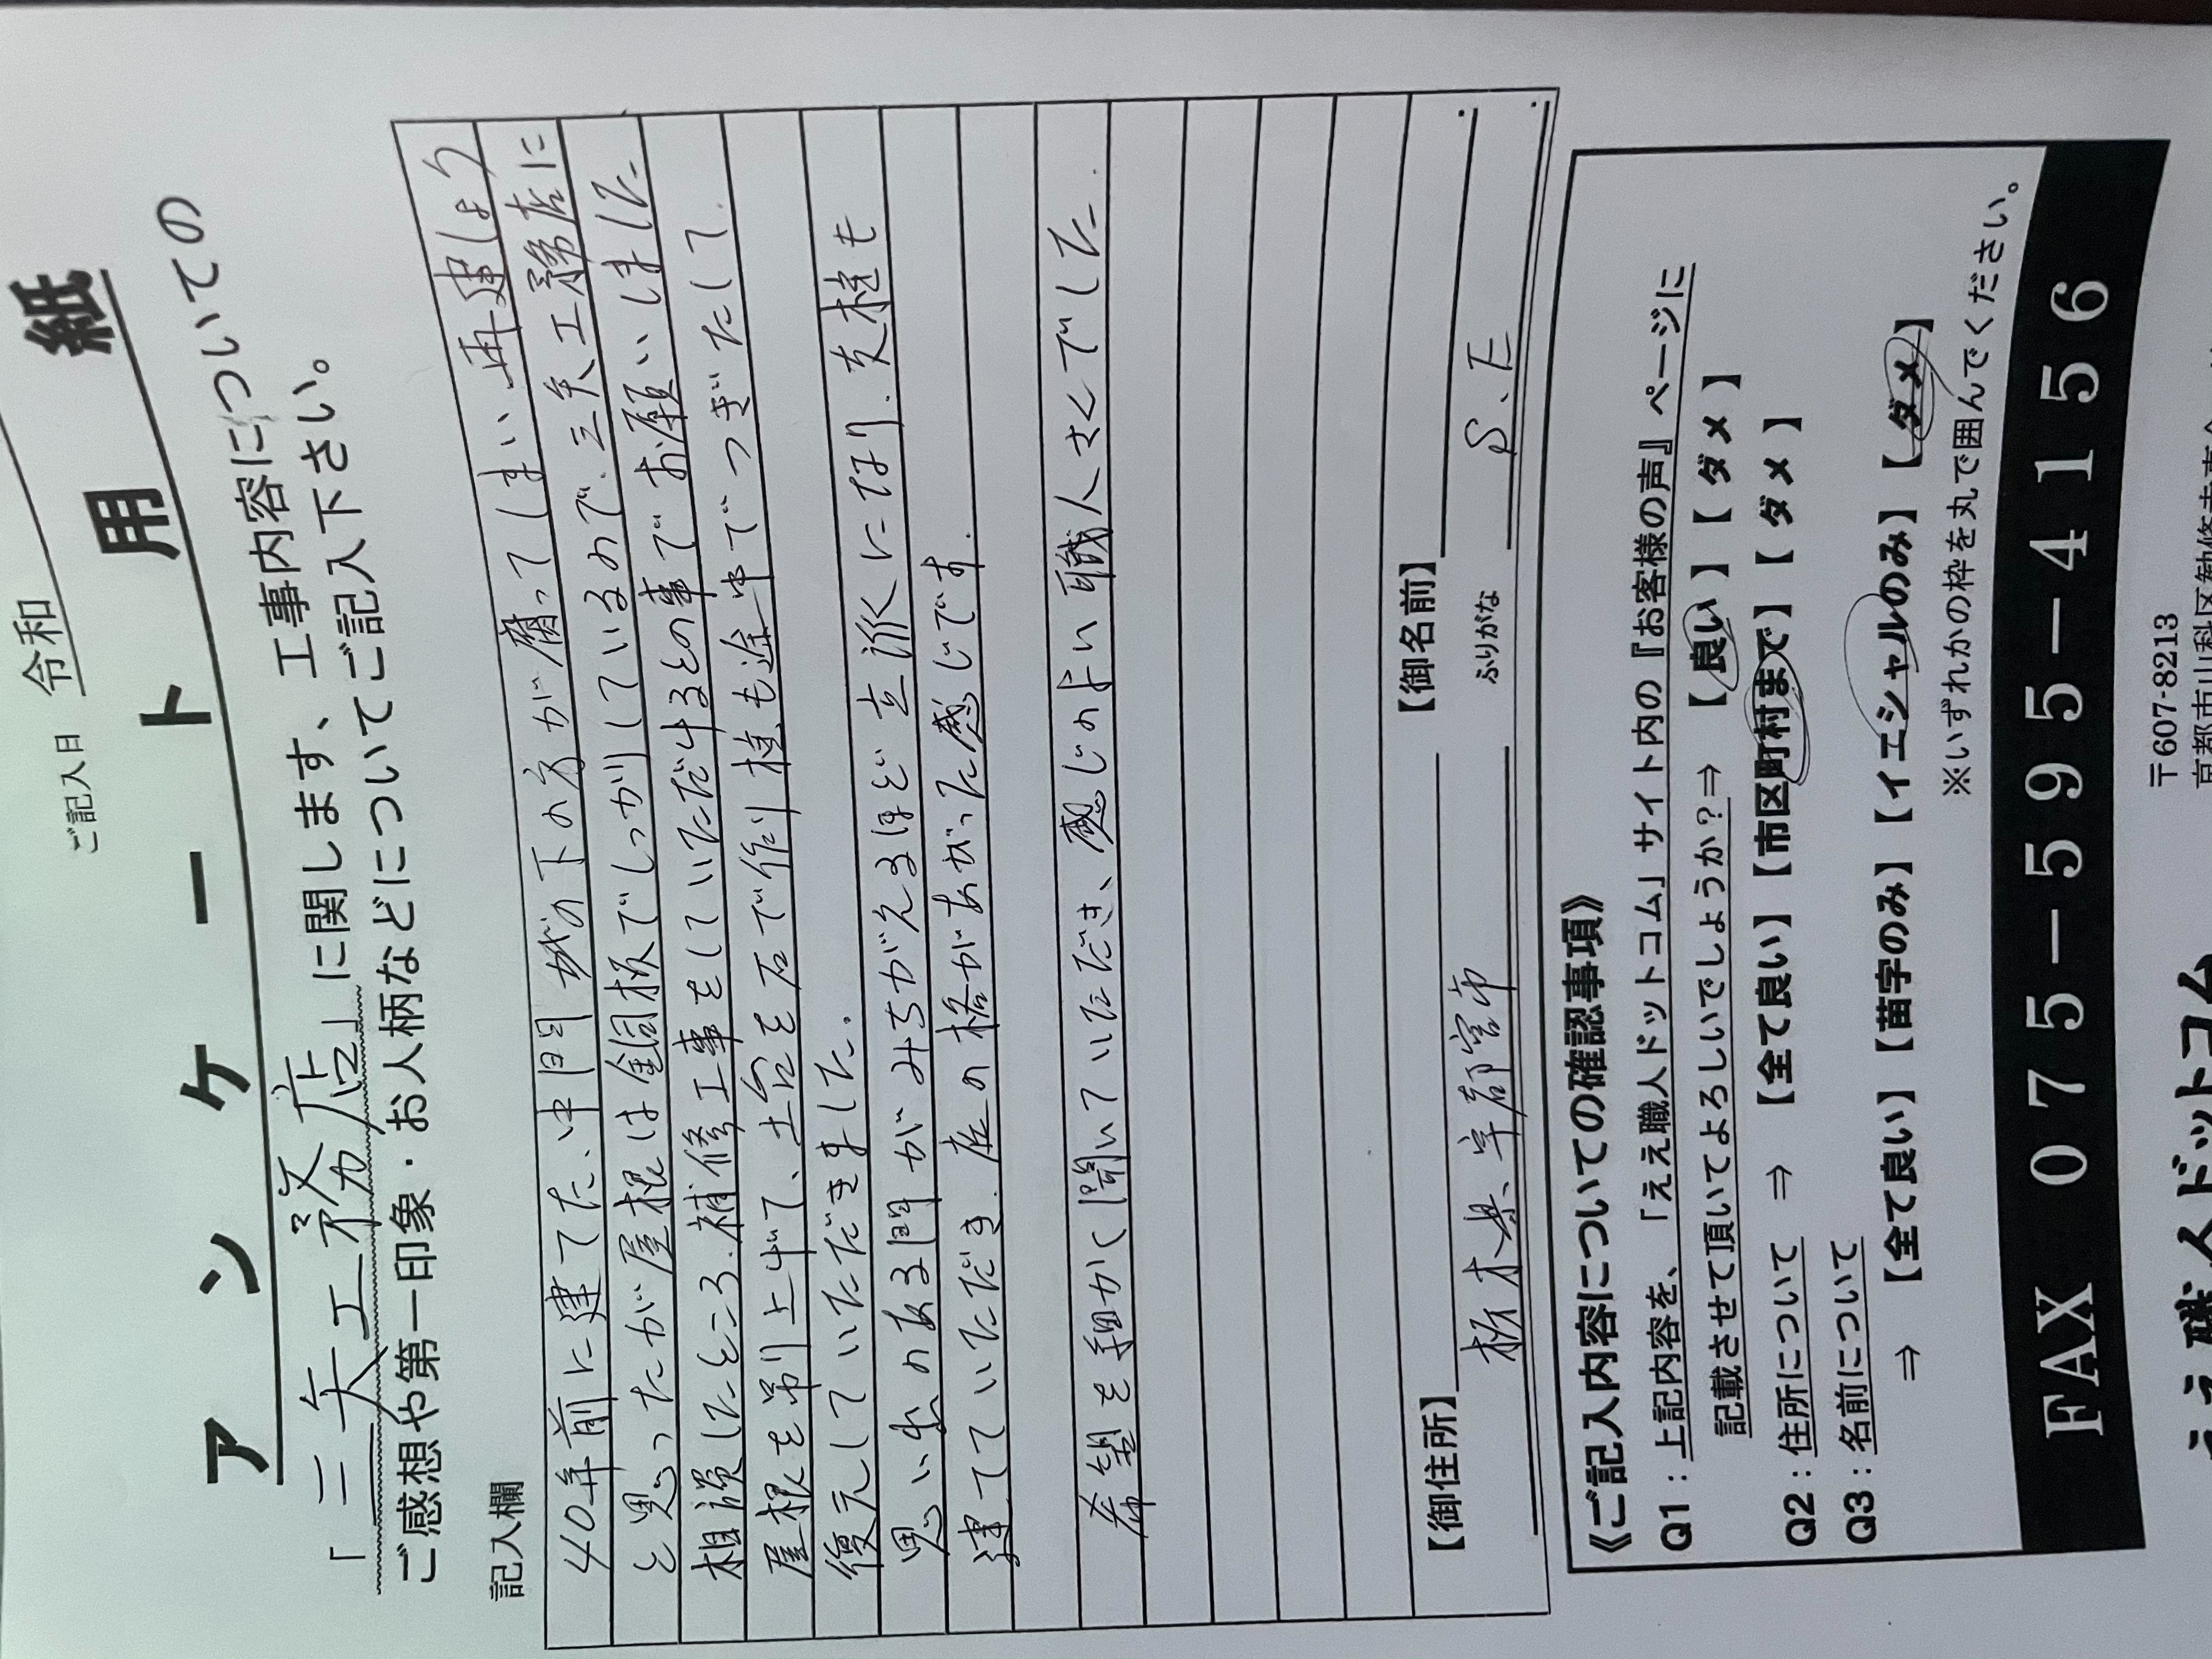 ご記入日 令和
アンケート用紙
「三矢工務店」に関します、工事内容についての
ご感想や第一印象・お人柄などについてご記入下さい。
記入欄
40年前に建てた、中門 が下の方が腐ってしまい、再建しよう
と思ったが屋根は銅板でしっかりしているので、三矢工務店に
相談したところ、補修工事をしていただけるとの事でお願いしました
屋根を吊り上げて、土台を石で作り 柱も途中でつぎたして
復元していただきました。
思い出のある門がみちがえるほど立派になり、支柱も
建てていただき、庭の格があがった感じです。
希望を細かく聞いていただき、感じのよい職人さんでした。
【御住所】 【御名前】
栃木県宇都宮市 ふりがな S.E
《ご記入内容についての確認事項》
Q1：上記内容を、「ええ職人ドットコム」サイト内の『お客様の声』ページに
記載させて頂いてよろしいでしょうか？⇒ 【良い】【ダメ】
Q2：住所について ⇒ 【全て良い】【市区町村まで】【ダメ】
Q3：名前について
⇒ 【全て良い】【苗字のみ】【イニシャルのみ】【ダメ】
※いずれかの枠を丸で囲んでください。
FAX 075-595-4156
〒607-8213
京都市山科区勧修寺
ええ職人ドットコム